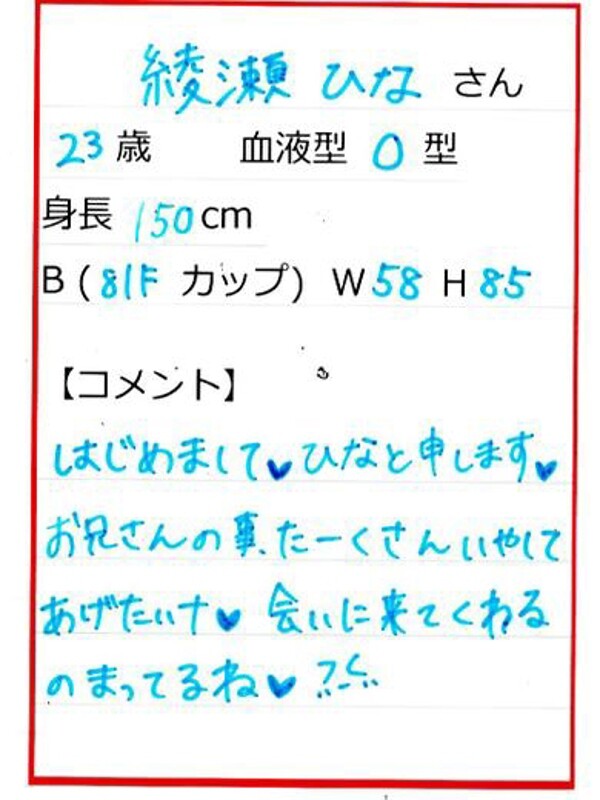 綾瀬 ひな さん
23 歳 血液型 O 型
身長 150 cm
B ( 81F カップ) W 58 H 85
【コメント】
はじめまして♥ひなと申します♥
お兄さんの事、たーくさんいやして
あげたいナ♥ 会いに来てくれる
のまってるね♥